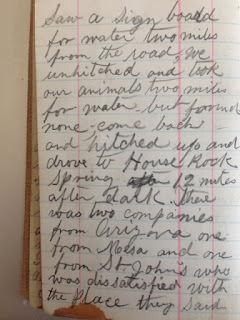 Saw a sign board
for water two miles
from the road, we
unhitched and took
our animals two miles
for water but found
none come back
and hitched up and
drove to House Rock
Spring 12 miles
after dark. there
was two companies
from Arizona one
from Mesa and one
from St. Johns who
was dissatisfied with
the Place they said